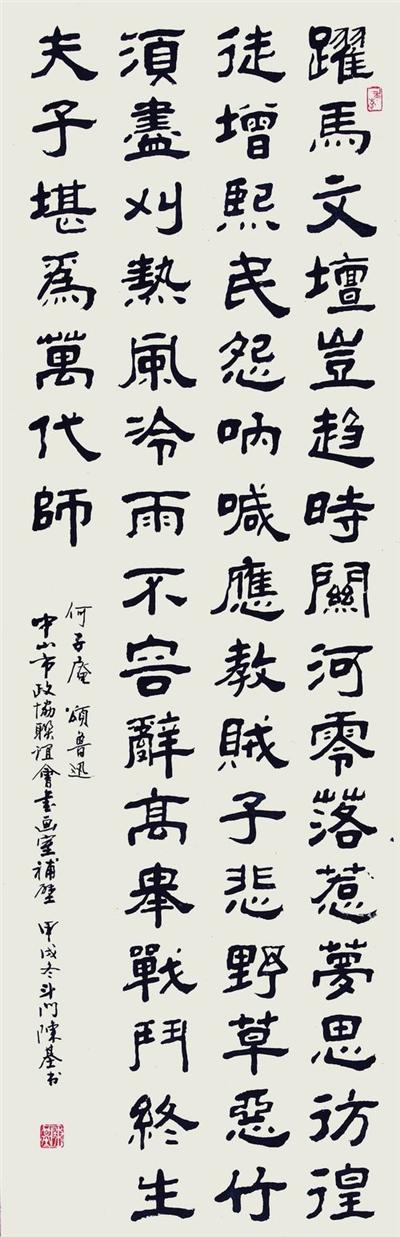 躍馬文壇豈趋時關河零落惹夢思彷徨
徒增熙民怨吶喊應教賊子悲野草惡竹
須盡刈熱風泠雨不容辭高舉戰鬥終生
夫子堪爲萬代師
何子庵 頌魯迅
中山市政協聯誼會書画室補壁 甲戌冬斗门陳基书